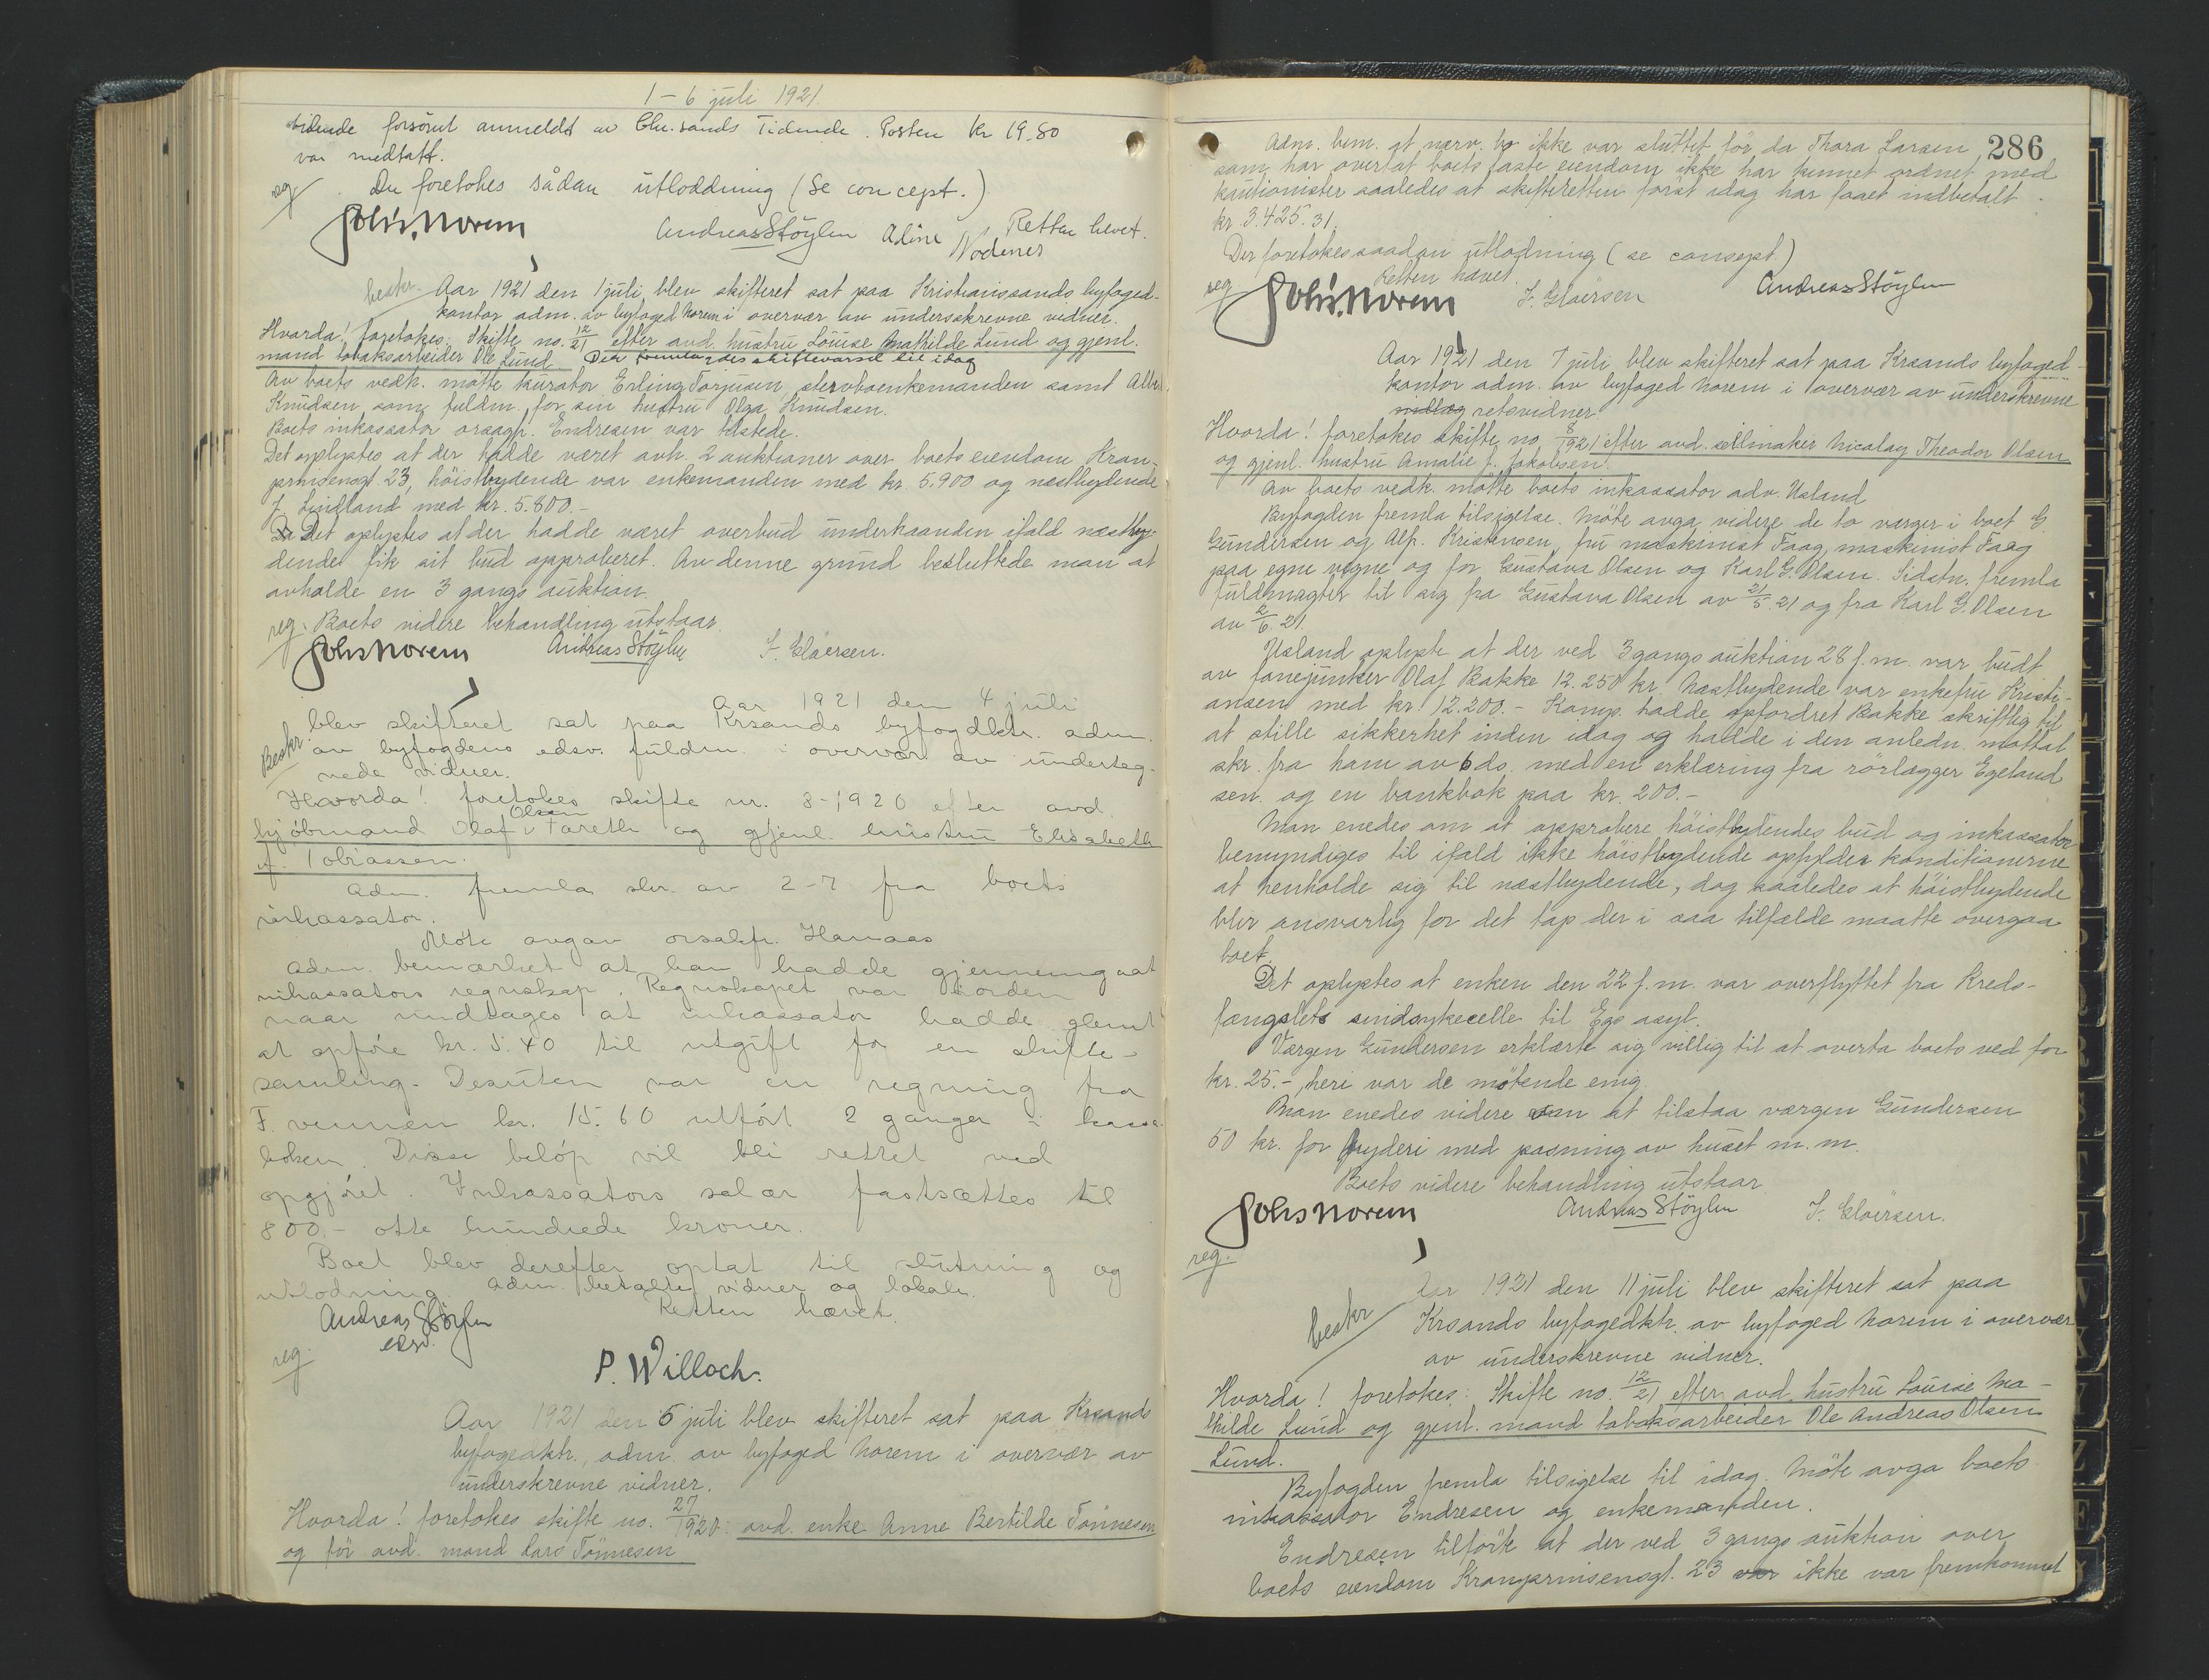 1 - 6 juli 1921
tidende forsömt anmeldt av Chr.sands Tidende. Posten kr 19.80
var medtatt.
reg Der foretokes sådan utloddning (se concept.)
Retten hevet.
Johs. Norem Andreas Stöylen Aline Nodenes
beskr. Aar 1921 den 1 juli blev skifteret sat paa Kristianssands byfoged-
kontor adm. av byfoged Norem i overvær av undersskrevne vidner.
Hvorda! foretokes: Skifte no. 12/21 efter avd. hustru Louise Mathilde Lund og gjenl.
mand tobaksarbeider Ole Lund Der fremlagdes skiftevarsel til idag
Av boets vedk. mötte kurator Erling Torjusen, stervboenkemanden samt Albr.
Knudsen som fuldm. for sin hustru Olga Knudsen.
Boets inkassator orsagf. Endresen var tilstede.
Det oplystes at der hadde været avh. 2 auktioner over boets eiendom Kron-
prinsensgt. 23, höistbydende var enkemanden med kr. 5.900 og næstbydende
J. Lindland med kr. 5.800.-
Det oplystes at der hadde været overbud underhaanden ifald næstby-
dende fik sit bud approberet. Av denne grund besluttede man at
avholde en 3 gangs auktion.
reg. Boets videre behandling utstaar.
Johs Norem Andreas Stöylen F. Glöersen.
Aar 1921 den 4 juli
Beskr. blev skifteret sat paa Krsands byfogdktr. adm.
av byfogdens edsv. fuldm. i overvær av underteg-
nede vidner.
Hvorda! foretokes skifte nr. 3-1920 efter avd.
Olsen
kjöbmand Olaf v Tareth og gjenl. hustru Elisabeth
f. Tobiassen.
Adm. fremla skr. av 2-7 fra boets
inkassator.
Möte avgav orsakfr. Hanaas
Adm. bemærket at han hadde gjennemgaat
inkassators regnskap. Regnskapet var i orden
naar undtages at inkassator hadde glemt
at opföre kr. 5.40 til utgift for en skifte-
samling. Desuten var en regning fra
F.vennen kr. 15.60 utfört 2 ganger i kasse-
boken. Disse belöp vil bli rettet ved
opgjöret. Inkassators salær fastsættes til
800.- otte hundrede kroner.
Boet blev derefter optat til slutning og
utlodning. Adm. betalte vidner og lokale.
Retten hævet.
Andreas Stöylen
edsv.
reg.
P. Willoch.
Aar 1921 den 5 juli blev skifteret sat paa Krsands
byfogedktr., adm. av byfoged Norem i overvær av
underskrevne vidner.
Hvorda! foretokes skifte no. 27/1920: avd. enke Anne Bertilde Tönnesen
og för avd. mand Lars Tönnesen
286
Adm. bem. at nærv. bo ikke var sluttet för da Thora Larsen
som har overtat boets faste eiendom ikke har kunnet ordnet med
kautionister saaledes at skifteretten först idag har faaet indbetalt
kr. 3.425.31.
Der foretokes saadan utlodning (se consept)
Retten hævet.
reg Johs. Norem F. Glöersen Andreas Stöylen
Aar 1921 den 7 juli blev skifteret sat paa Krsands byfoged-
kontor adm. av byfoged Norem i overvær av underskrevne
retsvidner
Hvorda! foretokes skifte no. 8/1921 efter avd. seilmaker Nicolay Theodor Olsen
og gjenl. hustru Amalie f. Jakobsen.
Av boets vedk. mötte boets inkassator adv. Usland
Byfogden fremla tilsigelse. Möte avga videre de to værger i boet G
Gundersen og Alf. Kristensen, fru maskinist Faag, maskinist Faag
paa egne vegne og for Gustava Olsen og Karl G. Olsen. Sidstn. fremla
fuldmagter til sig fra Gustava Olsen av 21/5.21 og fra Karl G. Olsen
av 2/6.21.
Usland oplyste at der ved 3 gangs auktion 28 f.m. var budt
av fanejunker Olaf Bakke 12.250 kr. Næstbydende var enkefru Kristi-
ansen med kr. 12.200.- Komp. hadde opfordret Bakke skriftlig til
at stille sikkerhet inden idag og hadde i den anledn. mottat
skr. fra ham av 6 ds. med en erklæring fra rörlægger Egeland
sen. og en bankbok paa kr. 200.-
Man enedes om at approbere höistbydendes bud og inkassator
bemyndiges til ifald ikke höistbydende opfylder konditionerne
at henholde sig til næstbydende, dog saaledes at höistbydende
blir ansvarlig for det tap der i saa tilfælde maatte overgaa
boet.
Det oplystes at enken den 22 f.m. var overflyttet fra Kreds-
fængslets sindsykecelle til Egs asyl.
Værgen Gundersen erklærte sig villig til at overta boets ved for
kr. 25.-, heri var de mötende enig.
Man enedes videre om at tilstaa værgen Gundersen
50 kr. for bryderi med pasning av huset m. m.
Boets videre behandling utstaar
Johs Norem Andreas Stöylen F. Glöersen.
reg.
beskr Aar 1921 den 11 juli blev skifteret sat paa
Krsands byfogedktr. av byfoged Norem i overvær
av underskrevne vidner.
Hvorda! foretokes: Skifte no. 12/21 efter avd. hustru Louise Ma-
thilde Lund og gjenl. mand tobaksarbeider Ole Andreas Olsen
Lund.
Byfogden fremla tilsigelse til idag. Möte avga boets
inkassator Endresen og enkemanden.
Endresen tilförte at der ved 3 gangs auktion over
boets eiendom Kronprinsensgt. 23 var ikke var fremkommet